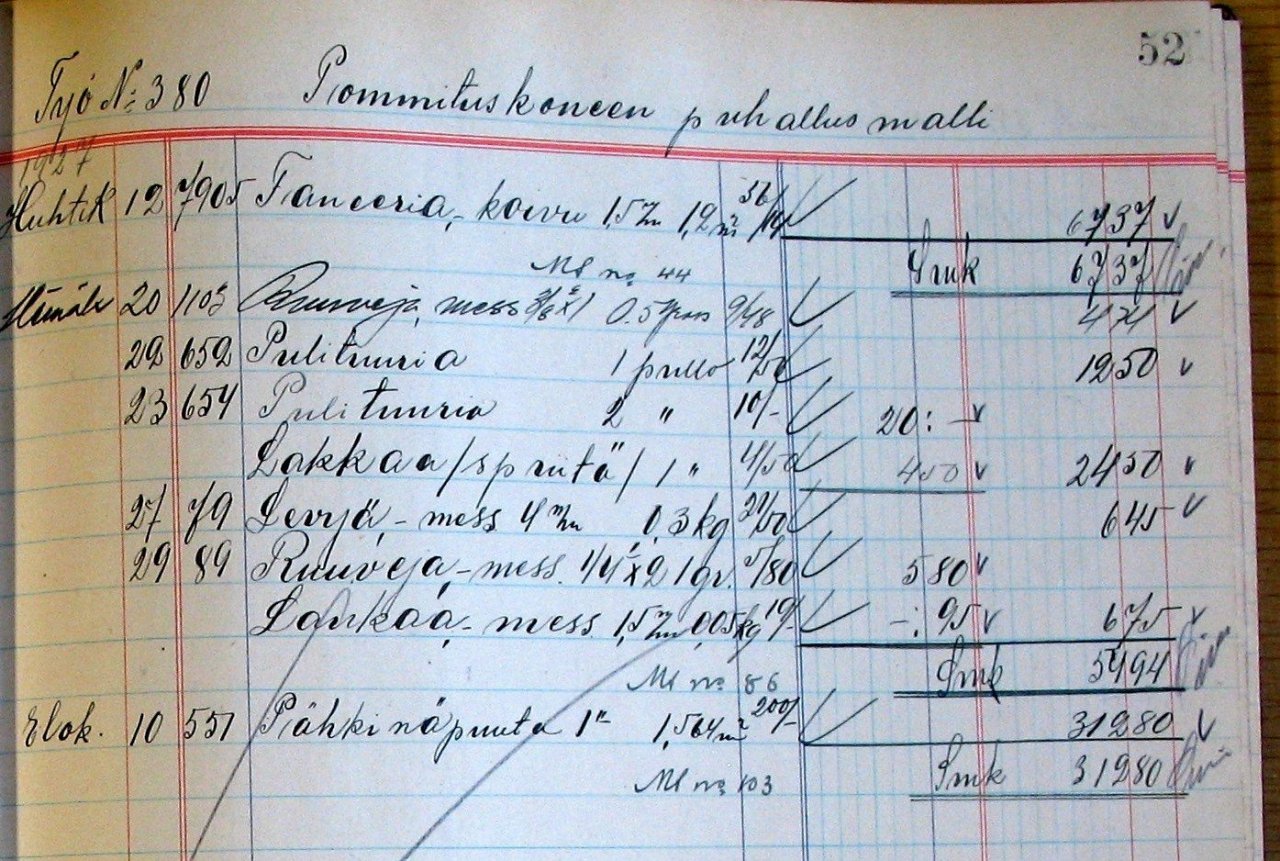 52
Työ No: 380 Pommituskoneen puhallusmalli
1927
Huhtik 12 7905 Faneeria, koivu 1,5 m/m 1,2 m² 56/14 6737
Smk 6737
Ml no 44
20 1103 Ruuveja, mess 0.5 9/48 474
22 652 Pulituuria 1 pullo 12/50 1250
23 654 Pulituuria 2 " 10/- 20:-
Lakkaa /spriitä/ 1 " 4/50 450 2450
27 79 Levyä, - mess 4 m/m 0,3 kg 21/50 645
29 89 Ruuveja, - mess. 1/4"x2 1 gr. 5/80 580
Lankaa, - mess. 1,5 m/m 0,05 kg 19/- -:95 675
Smk 5494
Ml no 86
Elok. 10 551 Pähkinäpuuta 1" 1,564 m² 200/- 31280
Smk 31280
Ml no 103